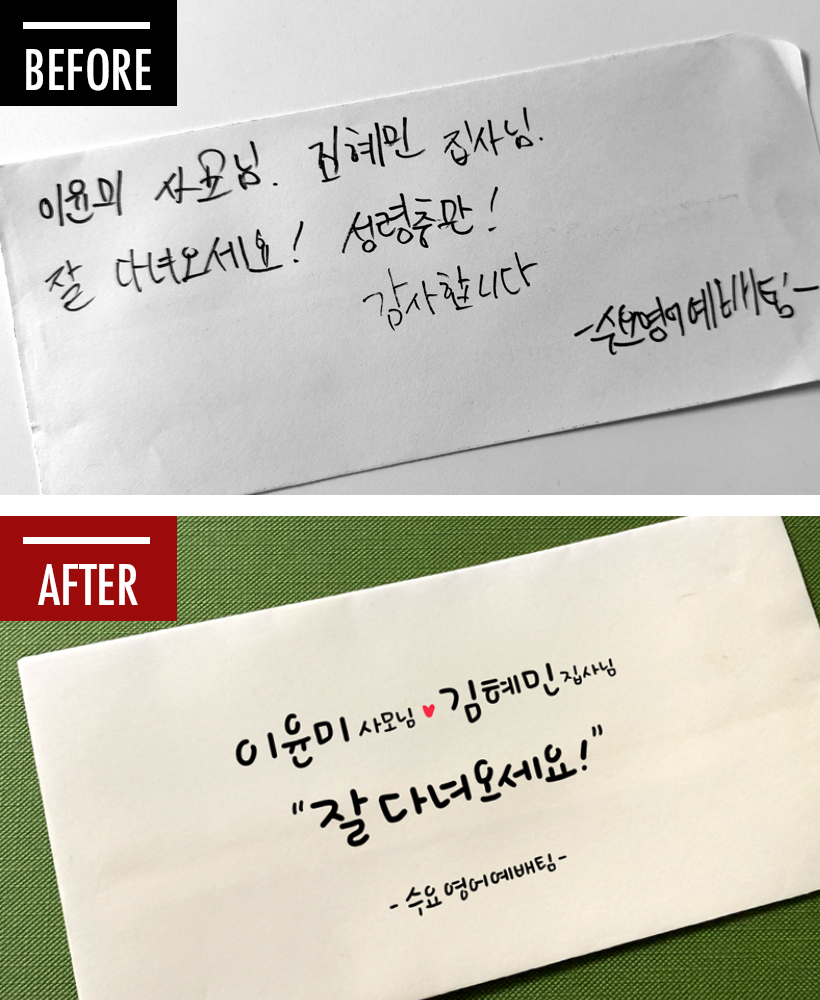 BEFORE
이윤미 사모님. 김혜민 집사님.
잘 다녀오세요! 성령충만!
감사합니다
-수요영어예배팀-
AFTER
이윤미 사모님 ♥ 김혜민 집사님
"잘 다녀오세요!"
- 수요 영어예배팀-